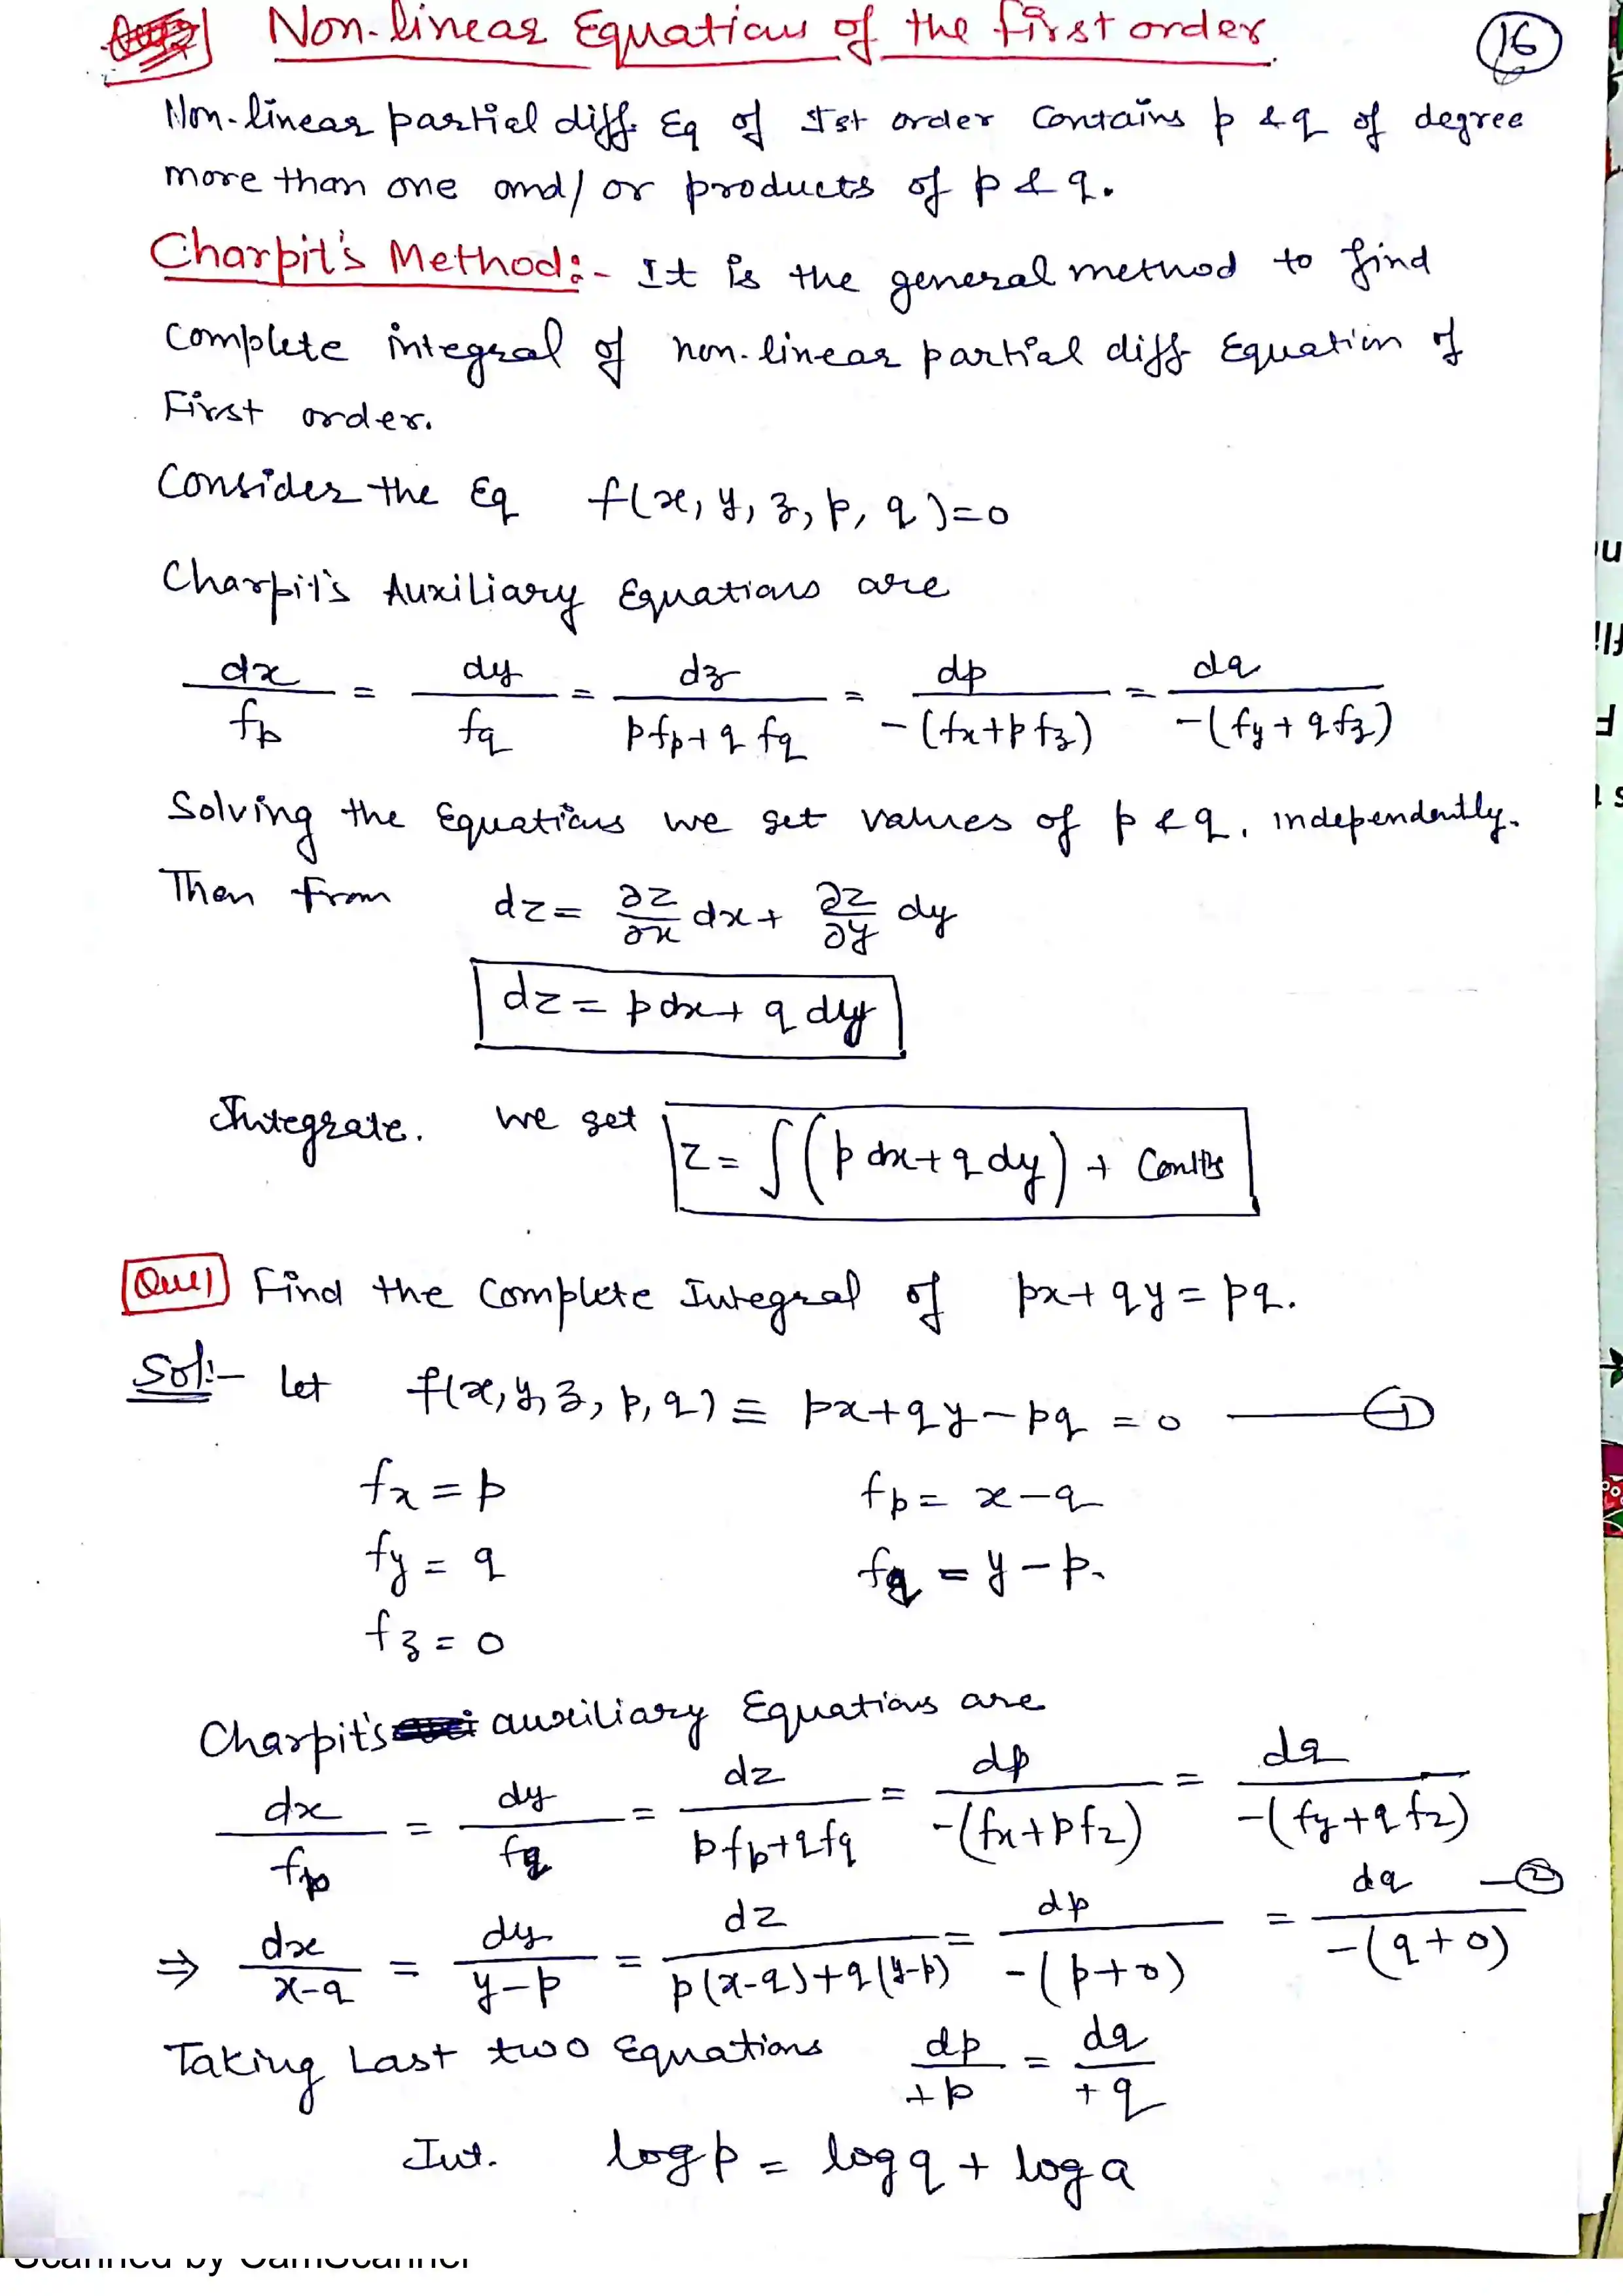 Non-linear Equations of the first order
16
Non-linear partial diff. Eq of Ist order contains p & q of degree
more than one and/or products of p & q.
Charpit's Method:- It is the general method to find
complete integral of non-linear partial diff Equation of
First order.
Consider the Eq f(x, y, z, p, q)=0
Charpit's Auxiliary Equations are
dx/fp = dy/fq = dz/(pfp+q fq) = dp/-(fx+p fz) = dq/-(fy+q fz)
Solving the Equations we get values of p & q. independently.
Then from dz = ∂z/∂x dx + ∂z/∂y dy
dz = pdx + q dy
Integrate. we get z = ∫(p dx+q dy) +
Que1 Find the Complete Integral of px+qy = pq.
Sol:- Let f(x, y, z, p, q) ≡ px+qy-pq = 0 —— 1
fx = p fp = x-q
fy = q fq = y-p.
fz = 0
Charpit's auxiliary Equations are
dx/fp = dy/fq = dz/(pfp+qfq) = dp/-(fx+pfz) = dq/-(fy+q fz)
⇒ dx/(x-q) = dy/(y-p) = dz/(p(x-q)+q(y-p)) = dp/-(p+0) = dq/-(q+0) — 2
Taking Last two Equations dp/+p = dq/+q
Int. log p = log q + log a
Scanned by CamScanner